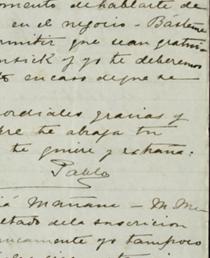 omento de hablarte de
en el negocio - Básteme
ermitir que sean gratui
nsick y yo te deberemos
to en caso de que se
ordiales gracias y
re te abraza tu
te quiere y extraña:
Pablo
á Manana - M. Me
ltado de la suscricion
nicamente yo tampoco